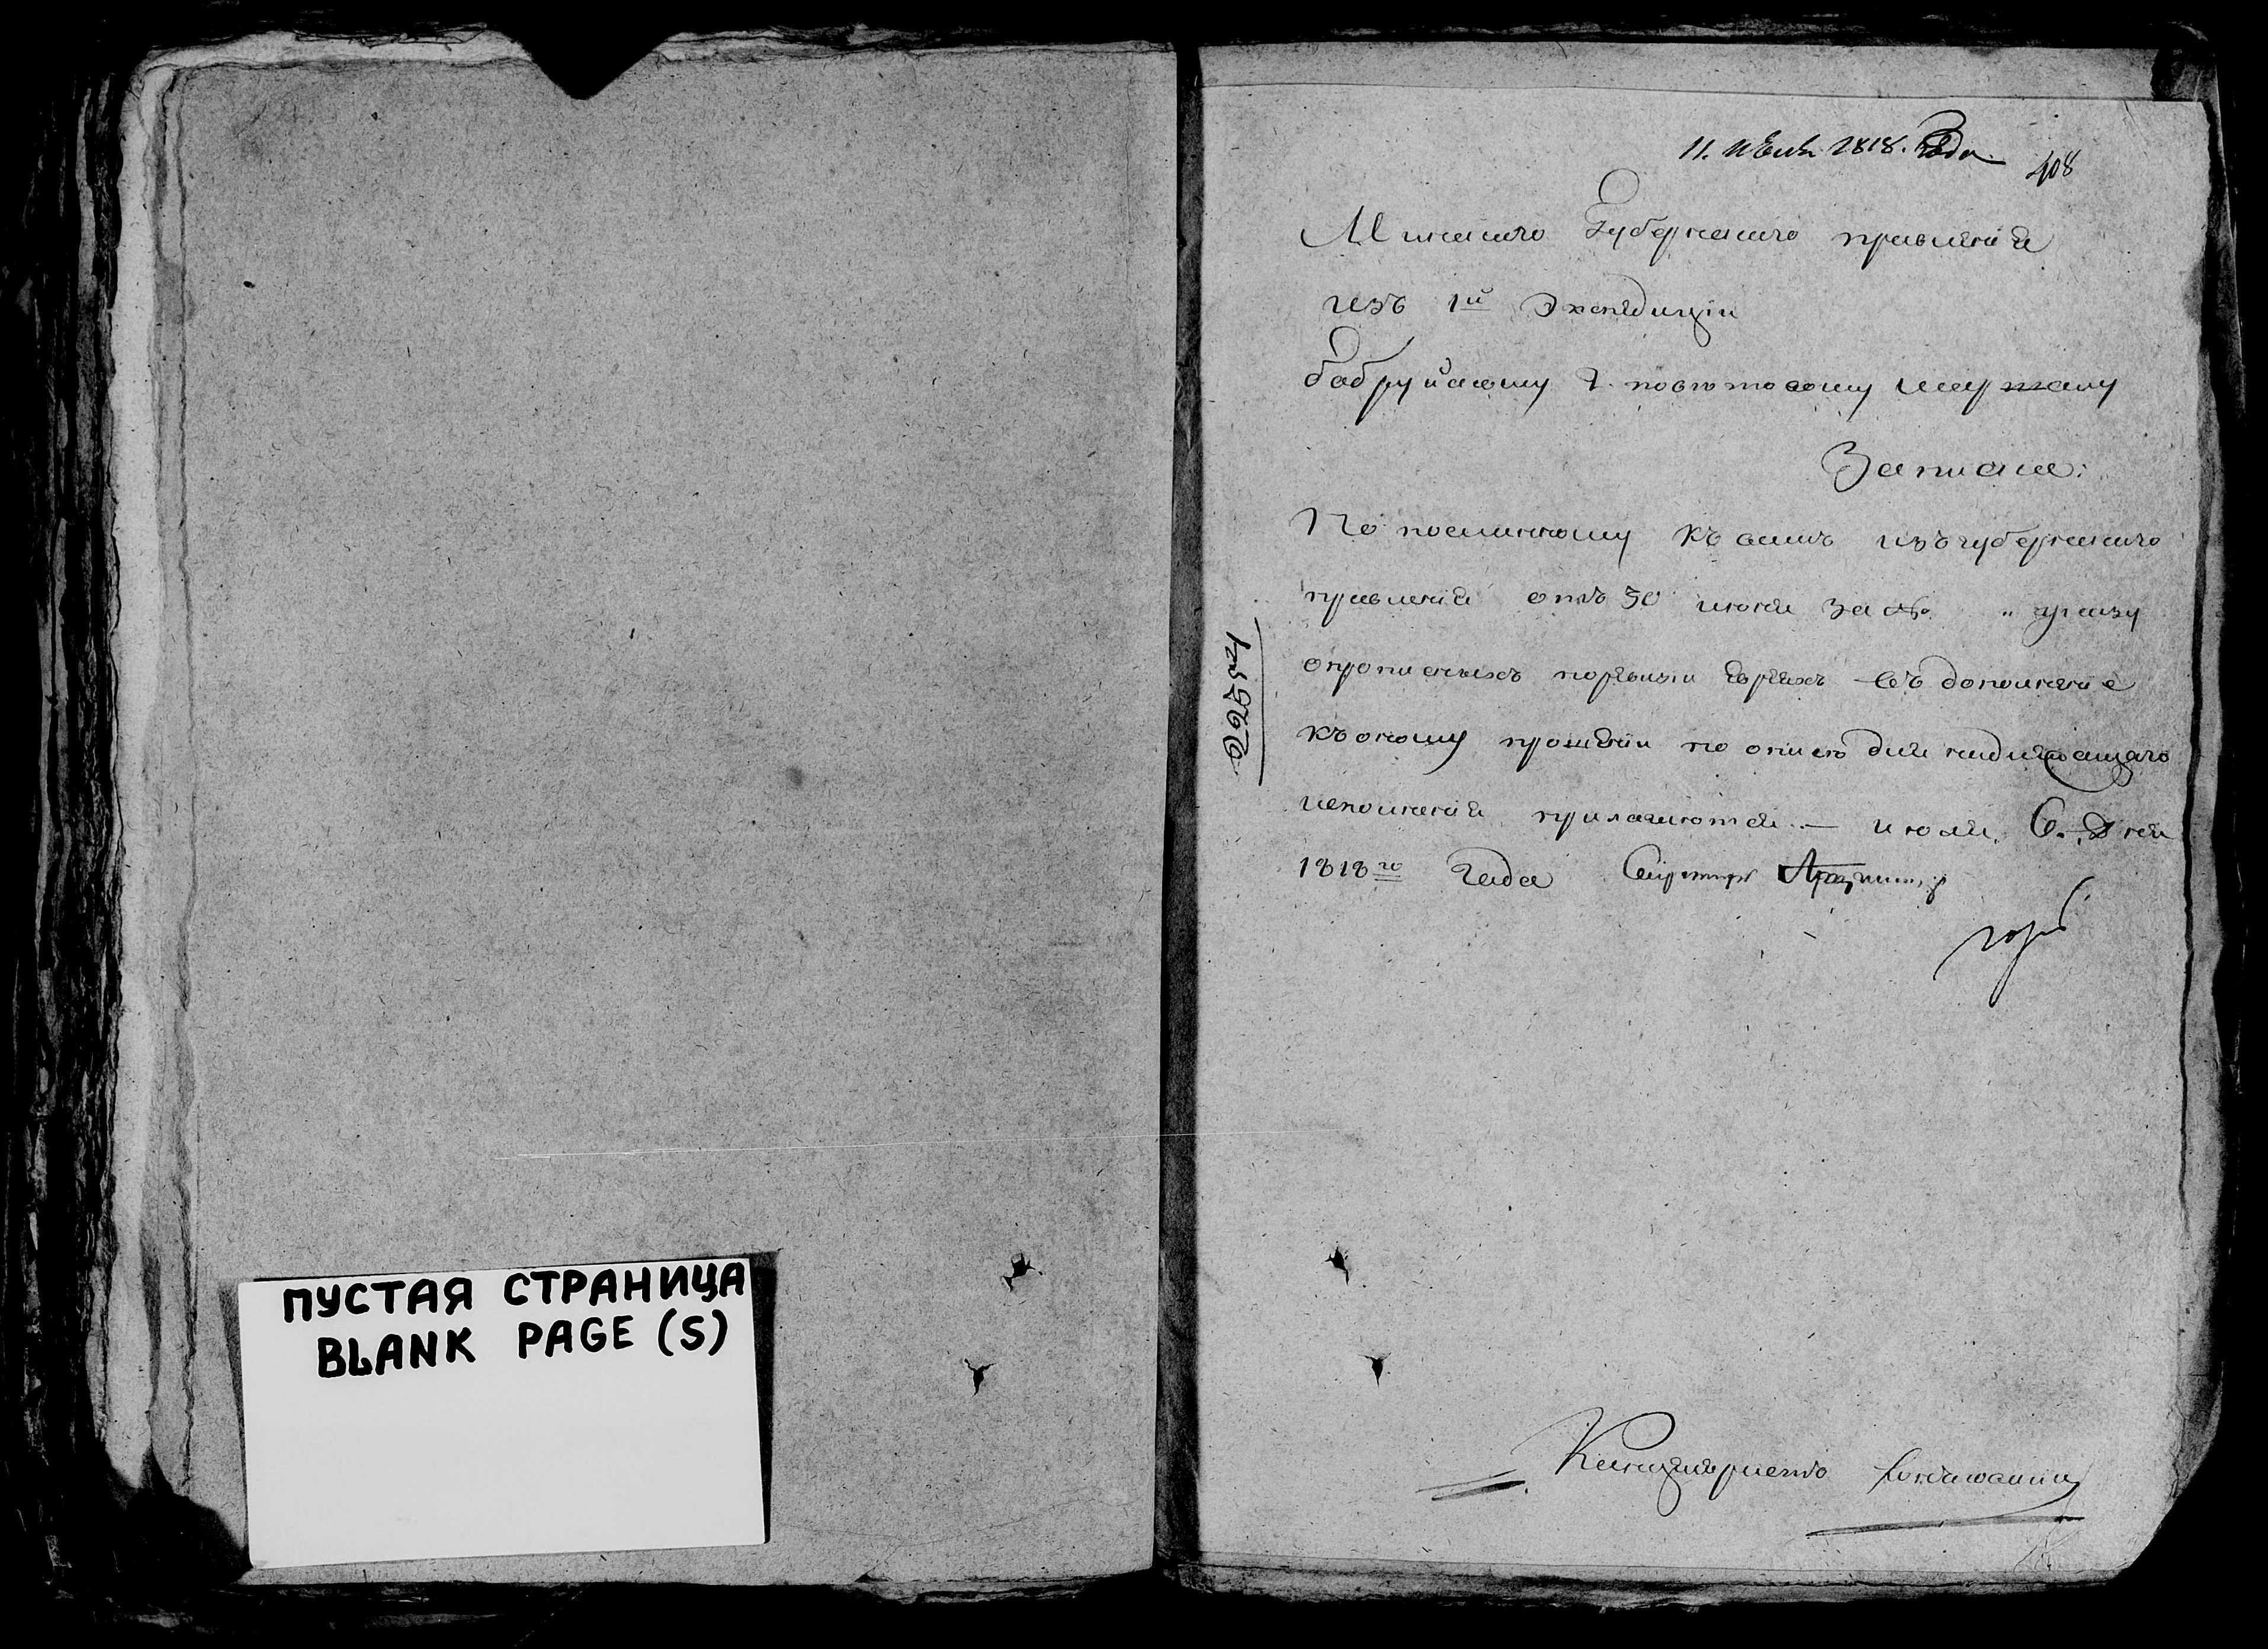 ПУСТАЯ СТРАНИЦА
BLANK PAGE (S)
11. 1818. Года
408
Минскаго Губернскаго правленія
изъ 1й Экспедиціи
бобруйскому г. повѣтовому маршалу
Записка:
По посланному къ вамъ изъ губернскаго
правленія отъ 30 июня за № „ указу
о прописныхъ по ревизіи евреяхъ въ дополненіе
къ оному прошеніи по описи для надлежащаго
исполненія прилагаются. — июля 6. Дня
1818го Года Секретарь
№ 5766
Канцеляристъ